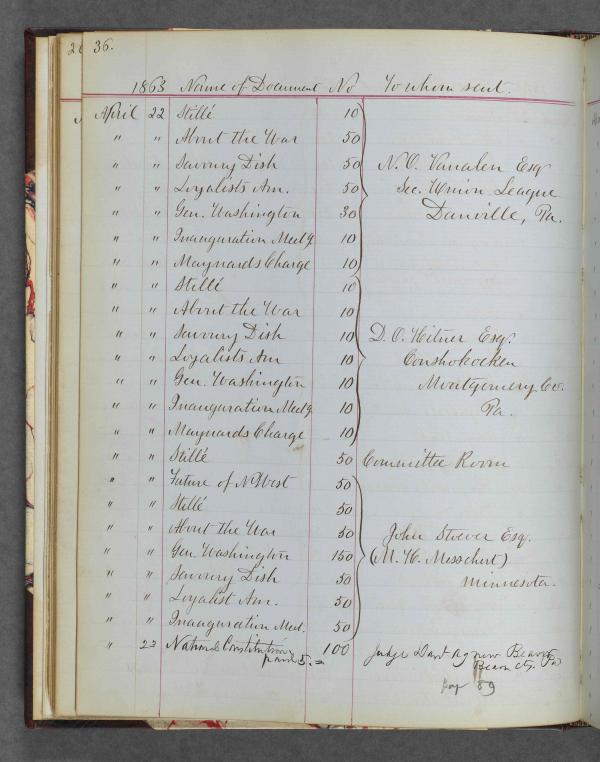 36.
1863 Name of Document No To whom sent.
April 22 Stillé 10
" " About the War 50
" " Savoury Dish 50 N. O. Vanalen Esq
" " Loyalists Am. 50 Sec. Union League
" " Gen. Washington 30 Danville, Pa.
" " Inauguration Meetg. 10
" " Maynards Charge 10
" " Stillé 10
" " About the War 10
" " Savoury Dish 10 D. O. Hitner Esq.
" " Loyalists Am 10 Conshohocken
" " Gen. Washington 10 Montgomery Co.
" " Inauguration Meetg. 10 Pa.
" " Maynards Charge 10
" " Stillé 50 Committee Room
" " Future of N West 50
" " Stillé 50
" " About the War 50 John Stover Esq.
" " Gen. Washington 150 (M. H. Messchert)
" " Savoury Dish 50 Minnesota.
" " Loyalist Am. 50
" " Inauguration Meet. 50
" 23 National Constitution 100 Judge Davd Agnew Beaver
5. = Beaver Cty. Pa
89